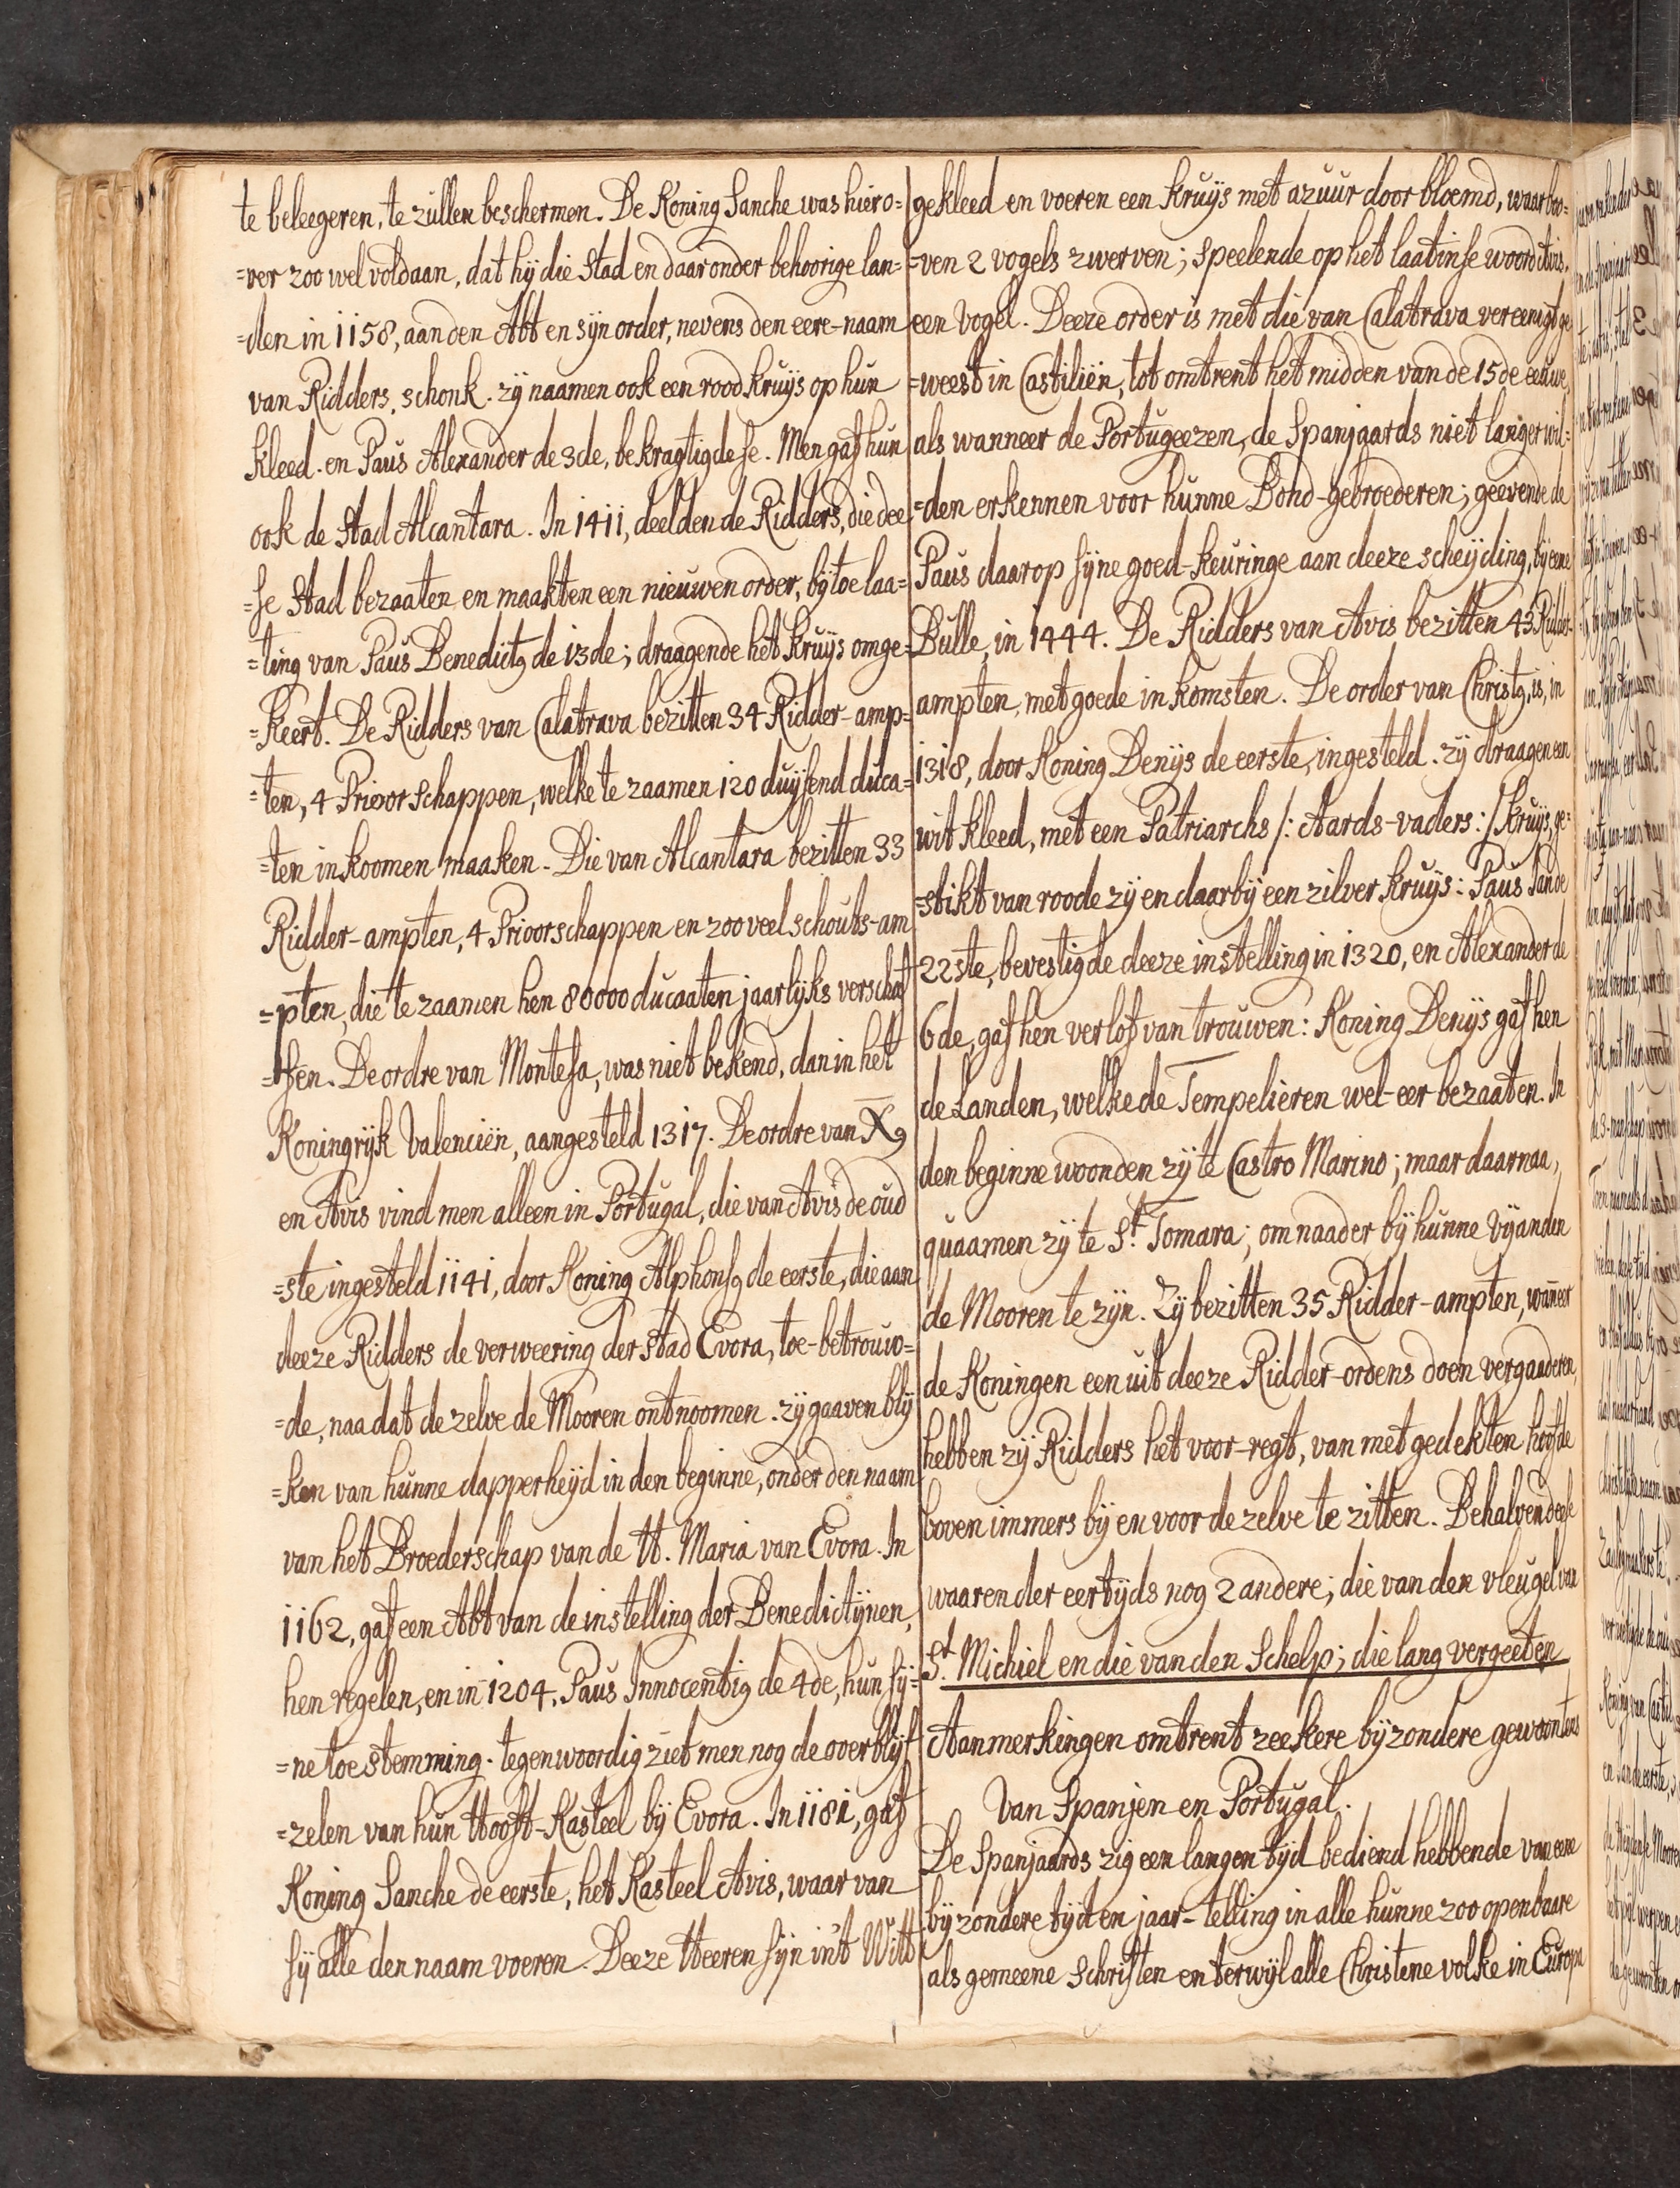 te beleegeren, te zullen beschermen. De Koning Sanche was hiero=
=ver zoo wel voldaan, dat hij die stad en daar onder behoorige lan=
=den in 1158, aan den Abt en sijn order, nevens den eere-naam
van Ridders, schonk. zij naamen ook een rood kruijs op hun
kleed. en Paus Alexander de 3de, bekragtigde se. Men gaf hun
ook de Stad Alcantara. In 1411, deelden de Ridders, die dee
=se Stad bezaaten en maakten een nieuwen order, bij toe laa=
=ting van Paus Benedictq de 13de; draagende het kruijs omge=
=keert. De Ridders van Calatrava bezitten 34 Ridder-amp=
=ten, 4 Prioorschappen, welke te zaamen 120 duijsend duca=
=ten inkoomen maaken. Die van Alcantara bezitten 33
Ridder-ampten, 4 Prioorschappen en zoo veel schouts-am
=pten, die te zaamen hen 80000 ducaaten jaarlijks verschaf
=fen. De ordre van Montesa, was niet bekend, dan in het
Koningrijk Valenciën, aangesteld 1317. De ordre van X̅q
en Avis vind men alleen in Portugal, die van Avis de oud
=ste ingesteld 1141, door Koning Alphonsq de eerste, die aan
deeze Ridders de verweering der stad Evora, toe-betrouw=
=de, naa dat de zelve de Mooren ontnoomen. zij gaaven blij
=ken van hunne dapperheijd in den beginne, onder den naam
van het Broederschap van de H. Maria van Evora. In
1162, gaf een Abt van de instelling der Benedictijnen,
hen regelen, en in 1204, Paus Innocentiq de 4de, hun sij=
=ne toestemming. tegenwoordig ziet men nog de overblijf
=zelen van hun Hooft-Kasteel bij Evora. In 1181, gaf
Koning Sanche de eerste, het Kasteel Avis, waar van
sij alle den naam voeren. Deeze Heeren sijn in't Witt
gekleed en voeren een kruijs met azuur door bloemd, waar boo=
=ven 2 vogels zwerven; speelende op het laatinse woord Avis,
een vogel. Deeze order is met die van Calatrava vereenigt ge
=weest in Castiliën, tot omtrent het midden van de 15de eeuwe,
als wanneer de Portugeezen, de Spanjaards niet langer wil=
=den erkennen voor hunne Bond-gebroederen; geevende de
Paus daar op sijne goed-keuringe aan deeze scheijding, bij eene
Bulle, in 1444. De Ridders van Avis bezitten 43 Ridder-
ampten, met goede inkomsten. De order van Christq, is, in
1318, door Koning Denijs de eerste, ingesteld. zij draagen een
wit kleed, met een Patriarchs /: Aards-vaders :/ kruijs, ge=
=stikt van roode zij en daar bij een zilver kruijs: Paus Jan de
22ste, bevestigde deeze instelling in 1320, en Alexander de
6de, gaf hen verlof van trouwen: Koning Denijs gaf hen
de Landen, welke de Tempelieren wel-eer bezaaten. In
den beginne woonden zij te Castro Marino; maar daarnaa,
quaamen zij te St. Tomara; om naader bij hunne Vijanden
de Mooren te zijn. Zij bezitten 35 Ridder-ampten, wan̄eer
de Koningen een uit deeze Ridder-ordens doen vergaaderen,
hebben zij Ridders het voor-regt, van met gedekten hoofde
boven immers bij en voor de zelve te zitten. Behalven deese
waaren der eertijds nog 2 andere; die van den vleugel van
St. Michiel en die van den Schelp; die lang vergeeten
Aanmerkingen omtrent zeekere bijzondere gewoontens
Van Spanjen en Portugal.
De Spanjaards zig een langen tijd bediend hebbende van eene
bijzondere tijd en jaar-telling in alle hunne zoo openbaare
als gemeene Schriften en terwijl alle Christene volke in Europa